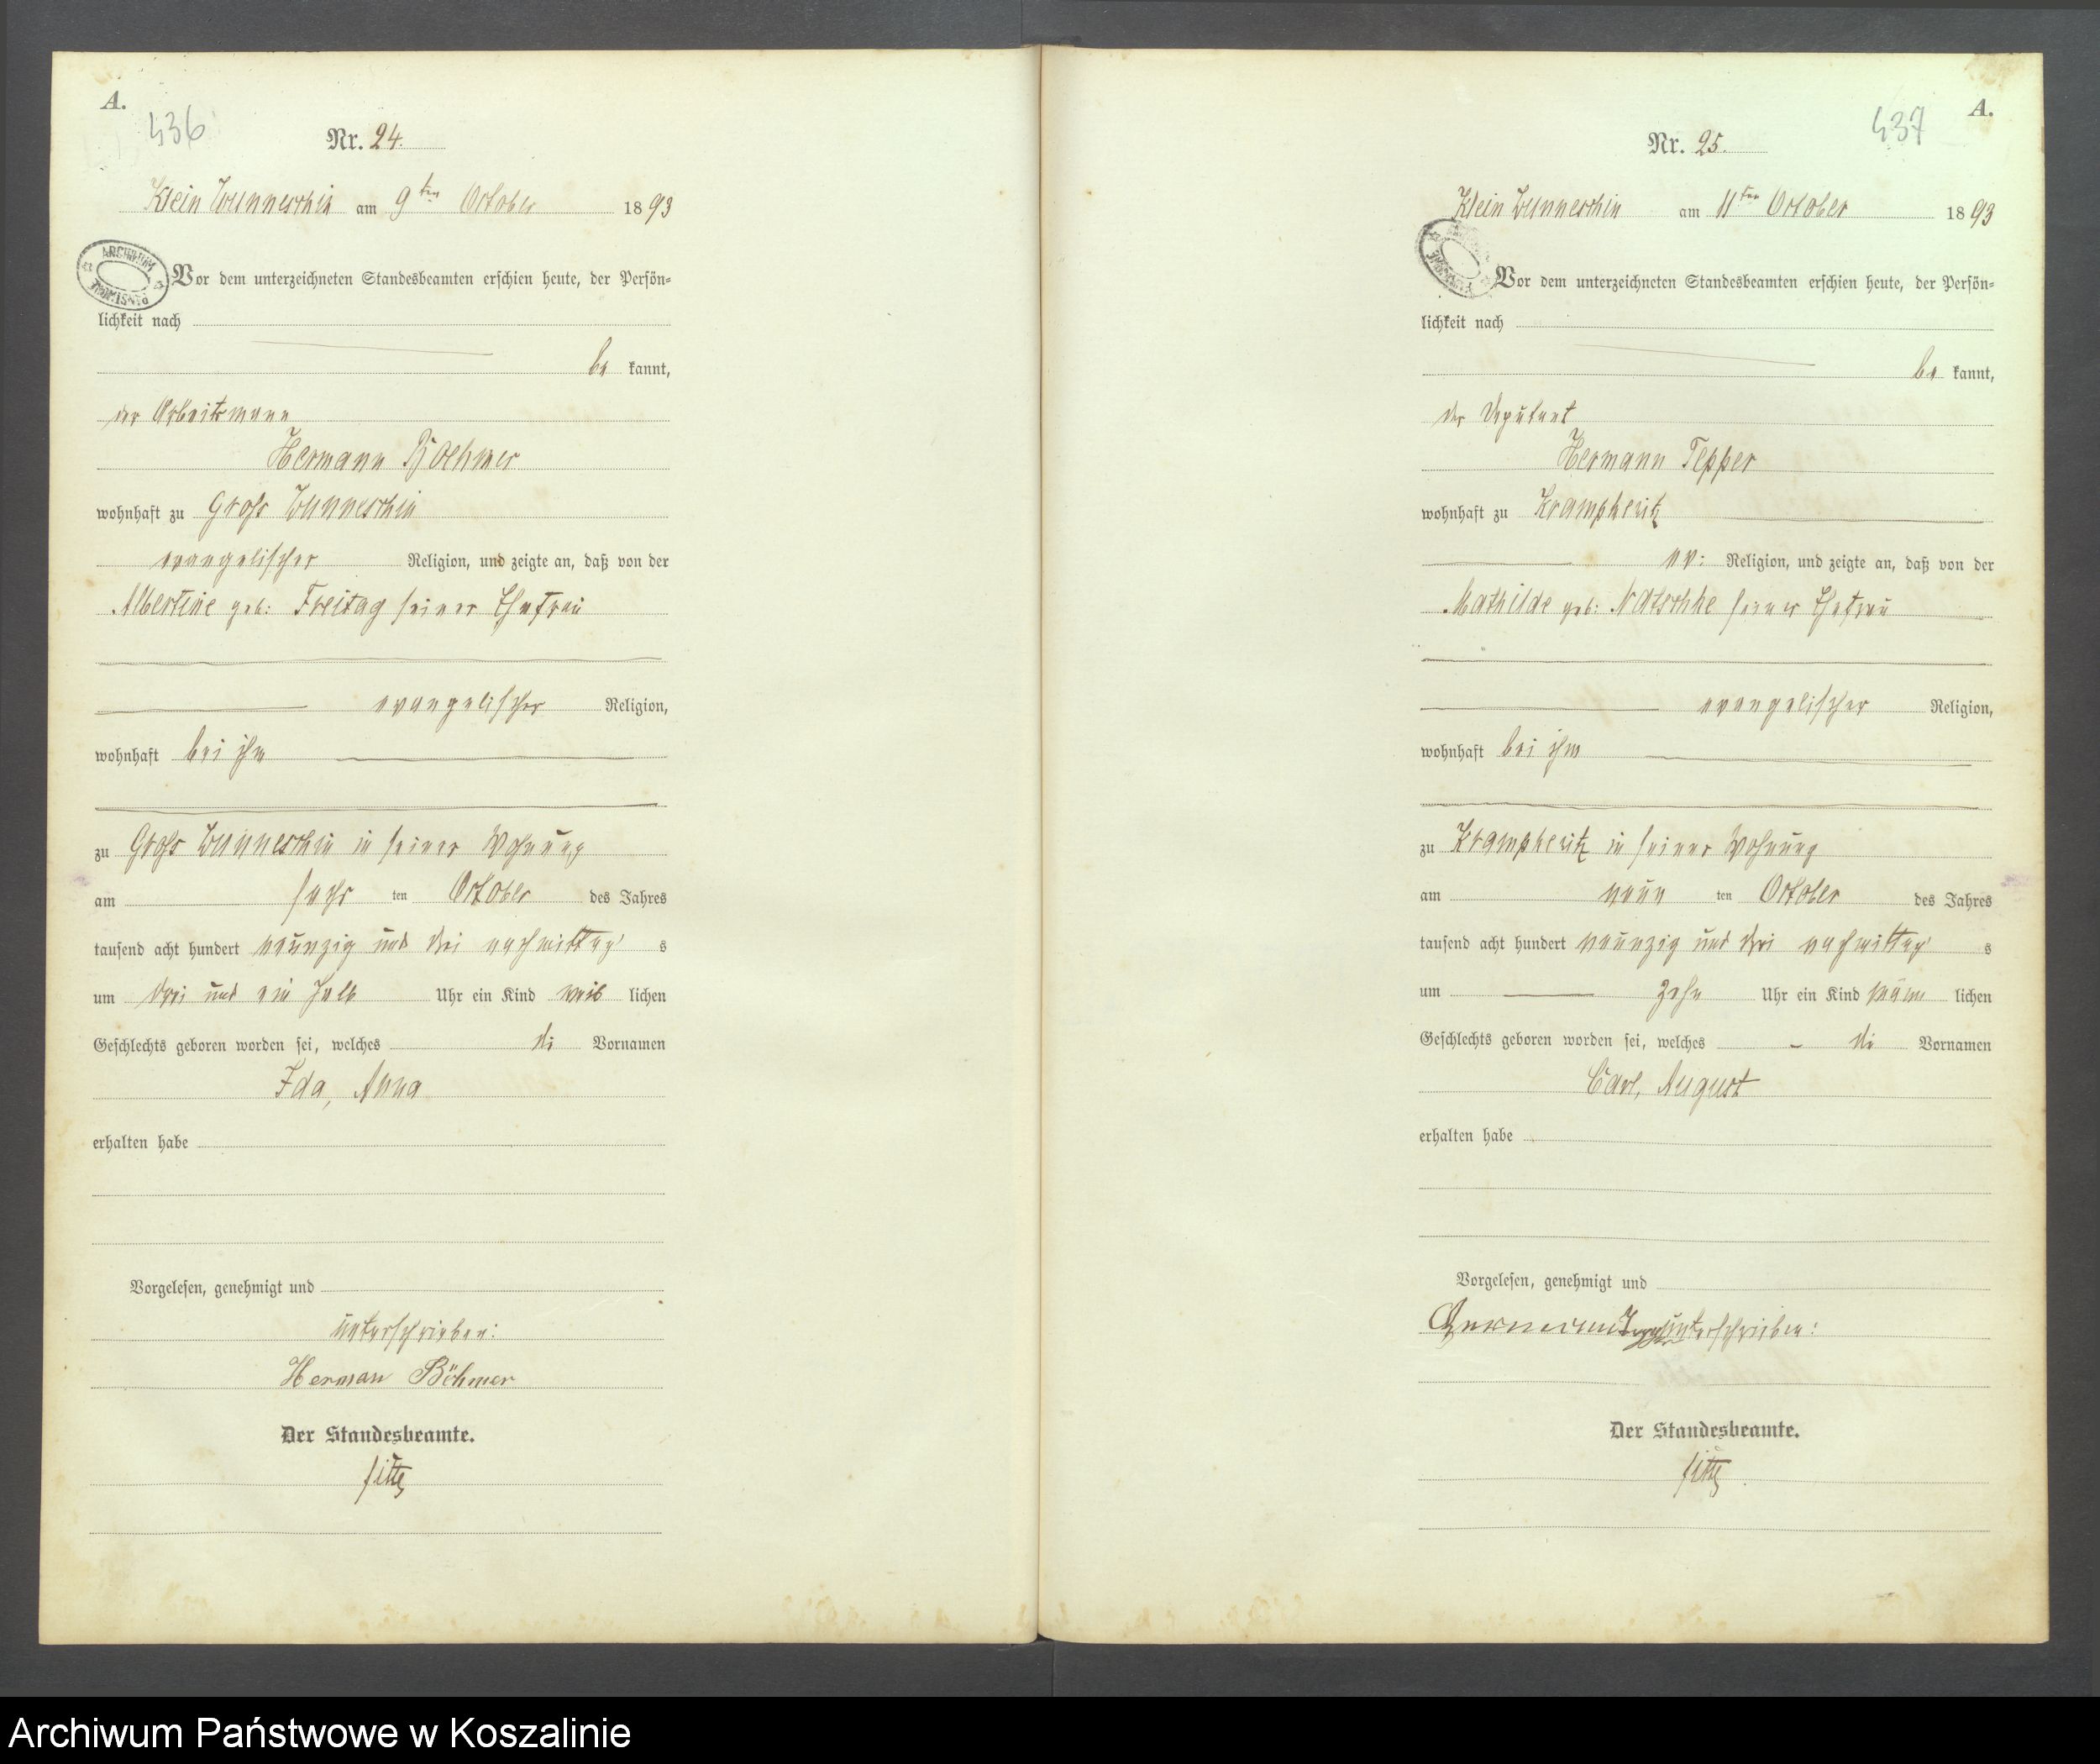 A.
436
Nr. 24.
Klein Wunneschin am 9ten October 1893
ARCHIWUM PAŃSTWOWE
Vor dem unterzeichneten Standesbeamten erschien heute, der Persön-
lichkeit nach
be kannt,
der Arbeitsmann
Hermann Boehmer
wohnhaft zu Gross Wunneschin
evangelischer Religion, und zeigte an, daß von der
Albertine geb: Freitag seiner Ehefrau
evangelischer Religion,
wohnhaft bei ihm
zu Gross Wunneschin in seiner Wohnung
am sechs ten October des Jahres
tausend acht hundert neunzig und drei nachmittag s
um drei und ein halb Uhr ein Kind weib lichen
Geschlechts geboren worden sei, welches di Vornamen
Ida, Anna
erhalten habe
Vorgelesen, genehmigt und
unterschrieben:
Herman Böhmer
Der Standesbeamte.
A.
437
Nr. 25.
Klein Wunneschin am 11ten October 1893
Vor dem unterzeichneten Standesbeamten erschien heute, der Persön-
lichkeit nach
be kannt,
der Deputant
Hermann Tepper
wohnhaft zu Krampkewitz
ev: Religion, und zeigte an, daß von der
Mathilde geb: Natschke seiner Ehefrau
evangelischer Religion,
wohnhaft bei ihm
zu Krampkewitz in seiner Wohnung
am neun ten October des Jahres
tausend acht hundert neunzig und drei nachmittag s
um zehn Uhr ein Kind männ lichen
Geschlechts geboren worden sei, welches di Vornamen
Carl, August
erhalten habe
Vorgelesen, genehmigt und
unterschrieben:
Der Standesbeamte.
Archiwum Państwowe w Koszalinie